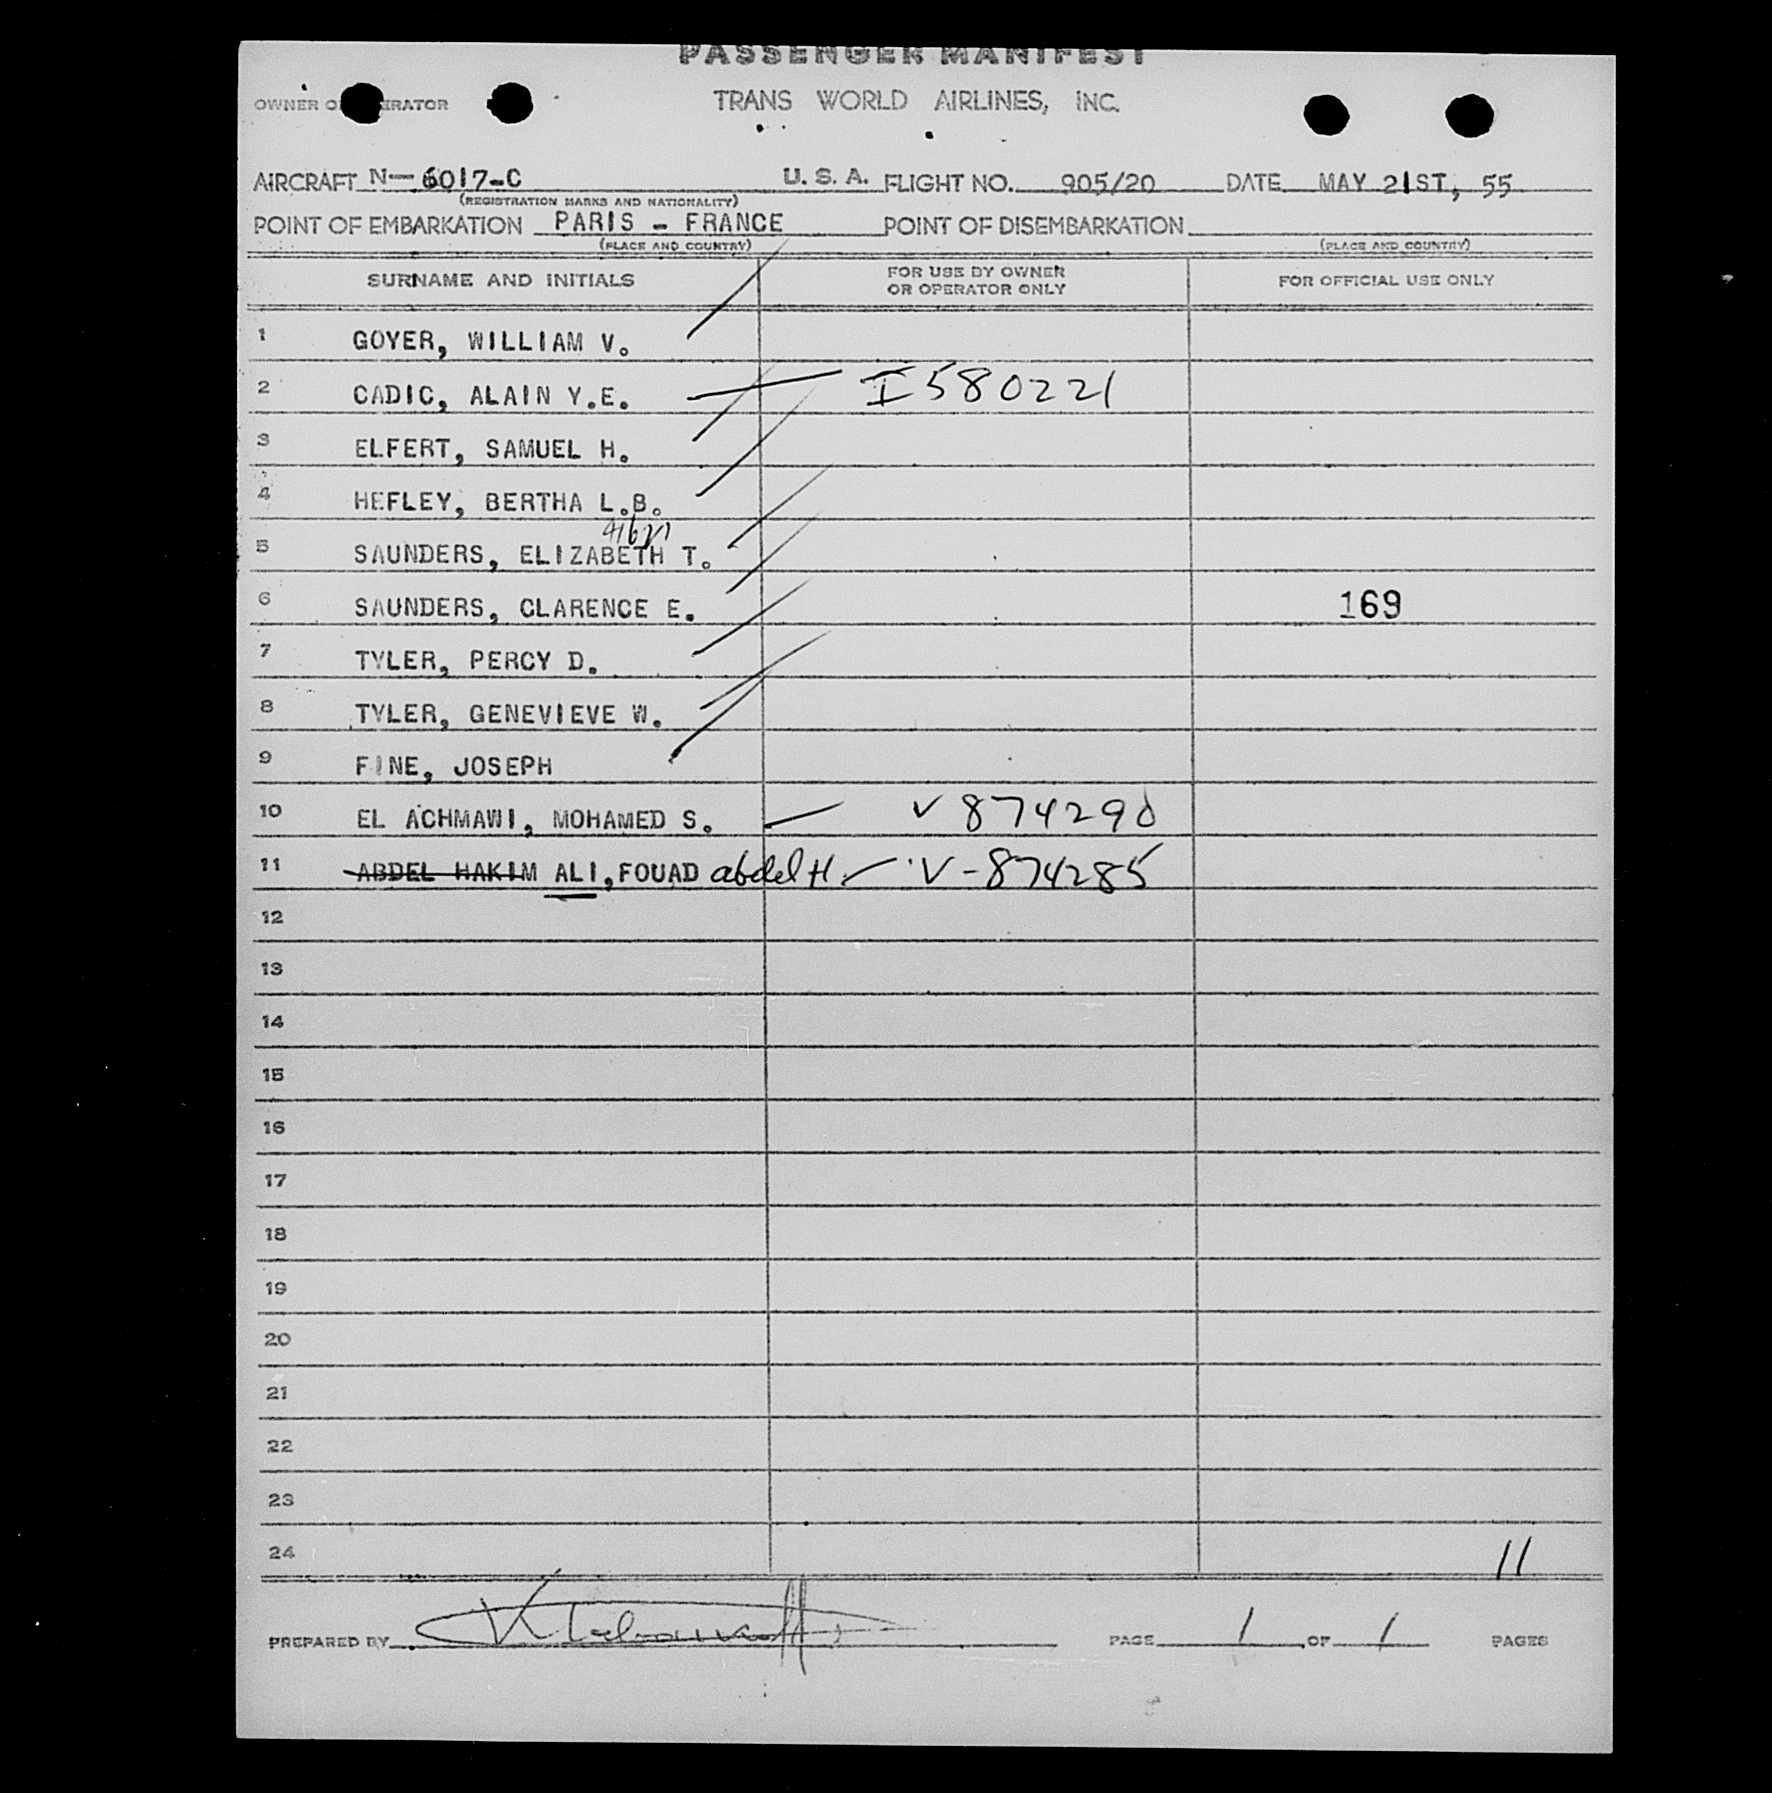 PASSENGER MANIFEST
OWNER O ERATOR TRANS WORLD AIRLINES, INC.
AIRCRAFT N-6017-C U. S. A. FLIGHT NO. 905/20 DATE MAY 21ST, 55
(REGISTRATION MARKS AND NATIONALITY)
POINT OF EMBARKATION PARIS - FRANCE POINT OF DISEMBARKATION
(PLACE AND COUNTRY) (PLACE AND COUNTRY)
SURNAME AND INITIALS FOR USE BY OWNER OR OPERATOR ONLY FOR OFFICIAL USE ONLY
1 GOYER, WILLIAM V.
2 CADIC, ALAIN Y.E. I580221
3 ELFERT, SAMUEL H.
4 HEFLEY, BERTHA L.B.
5 SAUNDERS, ELIZABETH T.
6 SAUNDERS, CLARENCE E. 169
7 TYLER, PERCY D.
8 TYLER, GENEVIEVE W.
9 FINE, JOSEPH
10 EL ACHMAWI, MOHAMED S. V 874290
11 ABDEL HAKIM ALI, FOUAD abdel H. V-874285
12
13
14
15
16
17
18
19
20
21
22
23
24 11
PREPARED BY PAGE 1 OF 1 PAGES